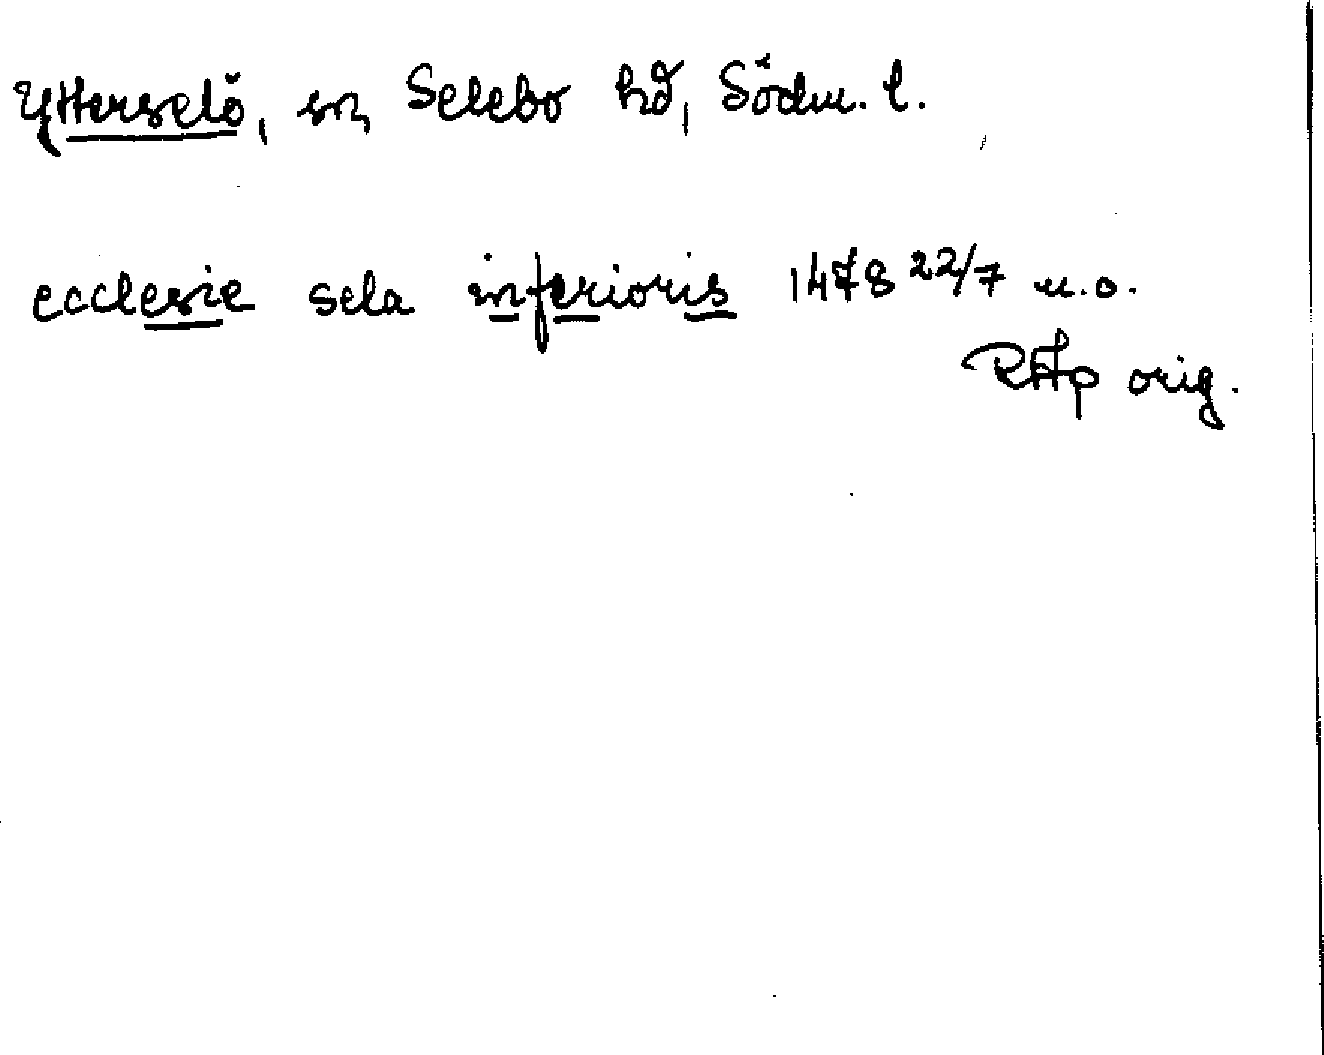 Ytterselö, sn, Selebo hd, Södm. l.
ecclesie sela inferioris 1478 22/7 u.o.
RAp orig.